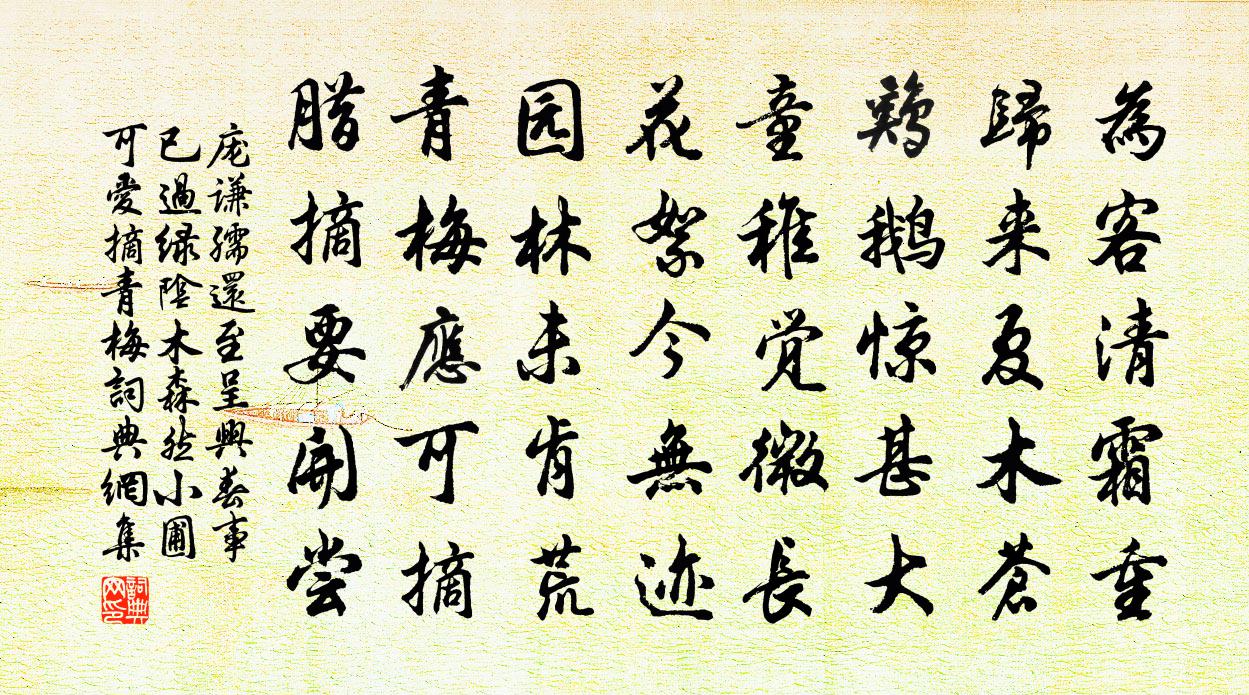 為客清霜重
歸来夏木蒼
鶏鹅惊甚大
童稚觉微長
花絮今無迹
园林未肯荒
青梅應可摘
腊摘要開尝
庞谦孺還至呈興春事
已過緑陰木森然小圃
可愛摘青梅詞典網集
詞典网印